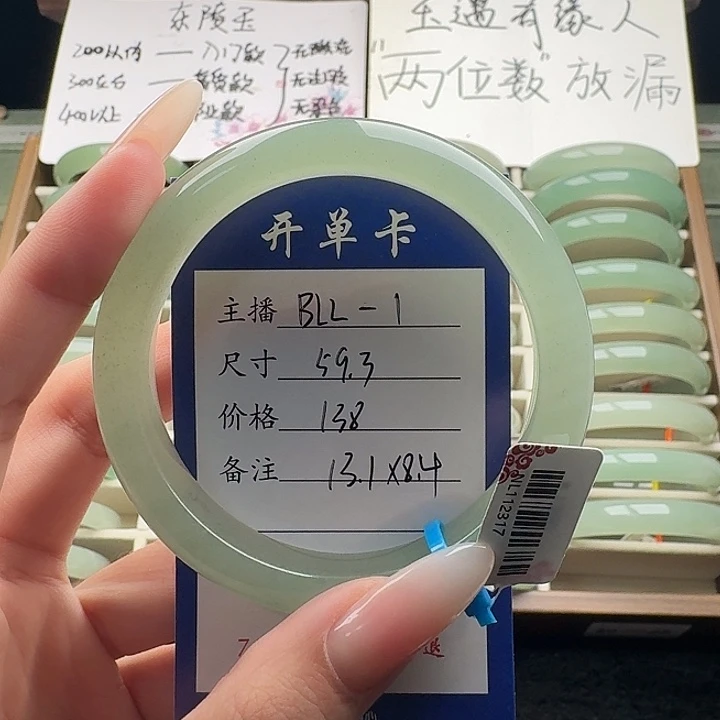 东陵玉
200以内 — 入门款
300左右 —
400以上
玉遇有缘人
"两位数"放漏
开单卡
主播 BLL-1
尺寸 59.3
价格 138
备注 13.1X8.4
NL112317
7
退